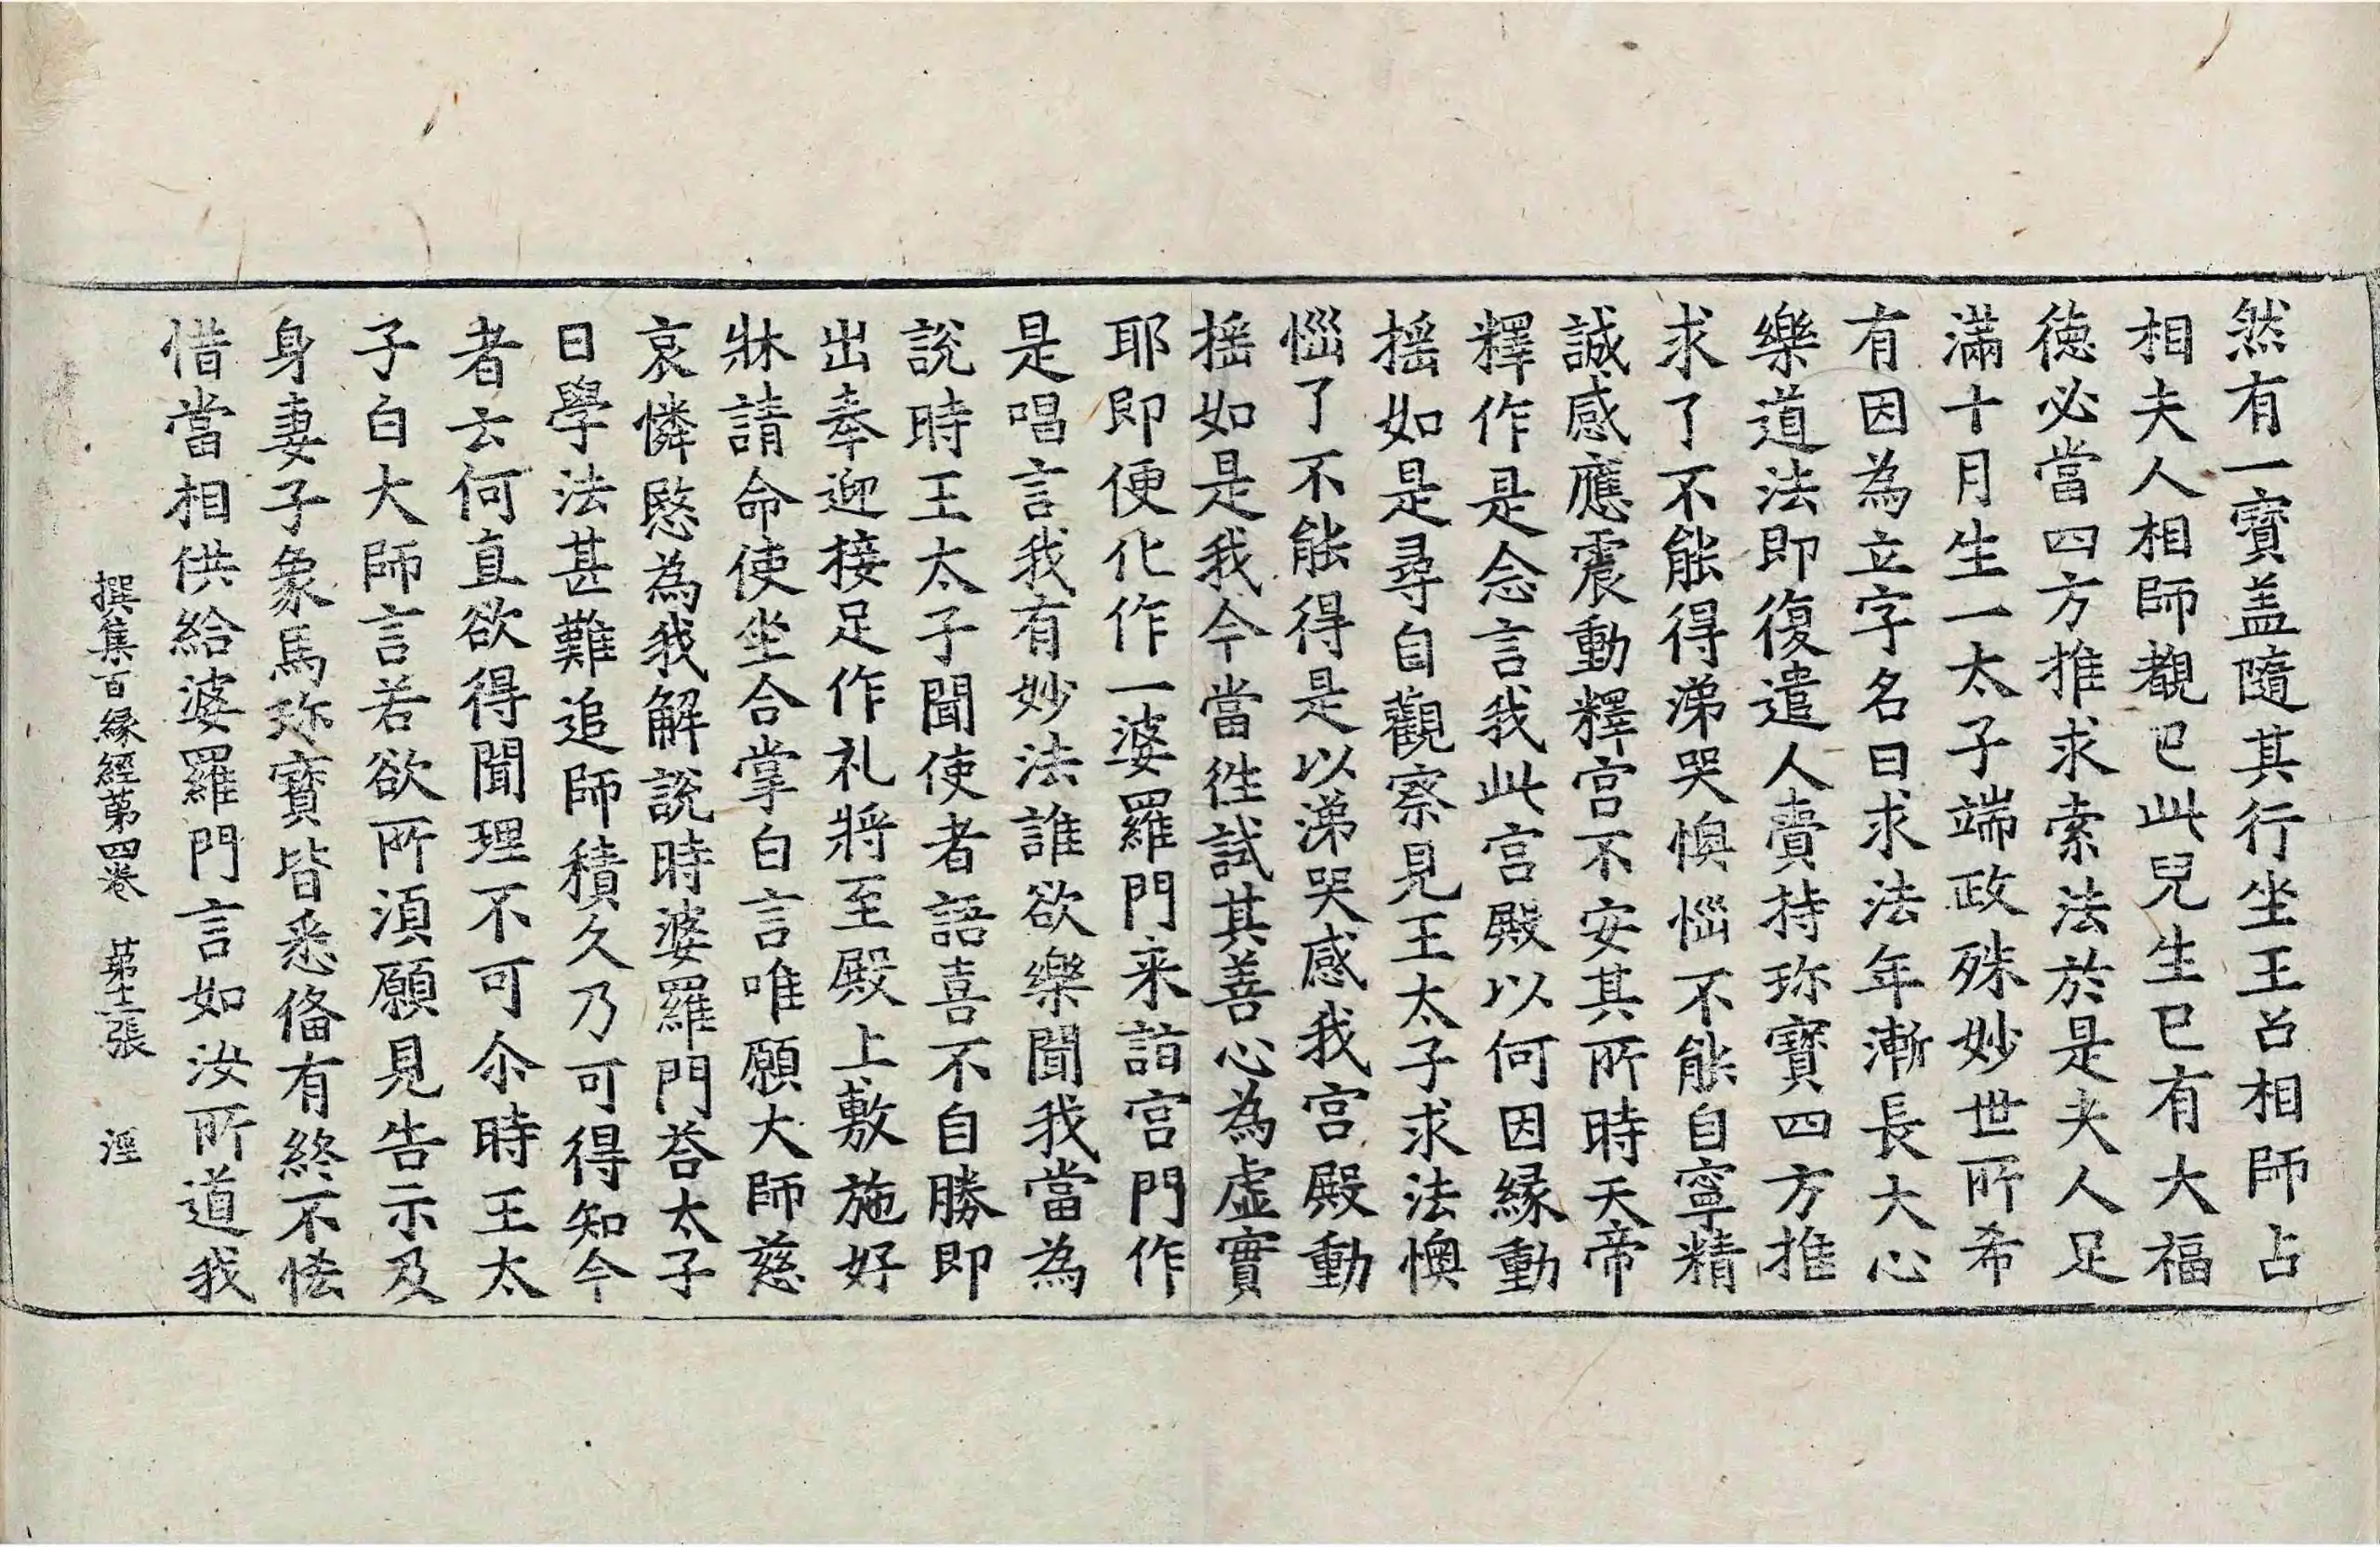 然有一寶盖隨其行坐王召相師占
相夫人相師覩已此兒生已有大福
徳必當四方推求索法於是夫人足
滿十月生一太子端政殊妙世所希
有因為立字名曰求法年漸長大心
樂道法即復遣人賷持珎寶四方推
求了不能得涕哭懊惱不能自寧精
誠感應震動釋宫不安其所時天帝
釋作是念言我此宫殿以何因縁動
揺如是尋自觀察見王太子求法懊
惱了不能得是以涕哭感我宫殿動
揺如是我今當徃試其善心為虛實
耶即便化作一婆羅門来詣宫門作
是唱言我有妙法誰欲樂聞我當為
說時王太子聞使者語喜不自勝即
出奉迎接足作礼將至殿上敷施好
牀請命使坐合掌白言唯願大師慈
哀憐愍為我解說時婆羅門荅太子
曰學法甚難追師積久乃可得知今
者云何直欲得聞理不可尒時王太
子白大師言若欲所湏願見告示及
身妻子象馬珎寶皆悉俻有終不恡
惜當相供給婆羅門言如汝所道我
撰集百縁經第四卷 苐十二張 涇